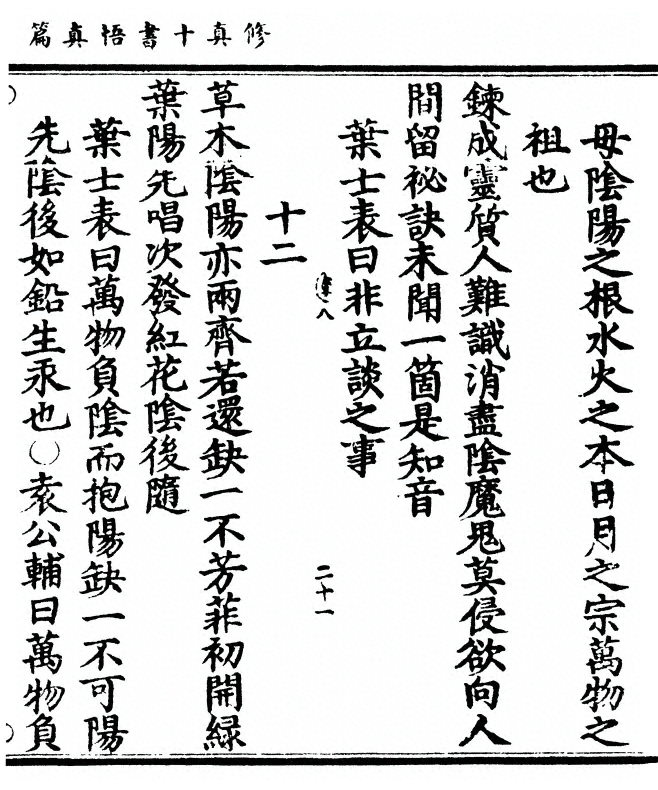 修真十書悟真篇
母陰陽之根水火之本日月之宗萬物之
祖也
鍊成靈質人難識消盡陰魔鬼莫侵欲向人
間留祕訣未聞一箇是知音
葉士表曰非立談之事
八
二十一
十二
草木陰陽亦兩齊若還缺一不芳菲初開緑
葉陽先唱次發紅花陰後隨
葉士表曰萬物負陰而抱陽缺一不可陽
先陰後如鉛生汞也○袁公輔曰萬物負